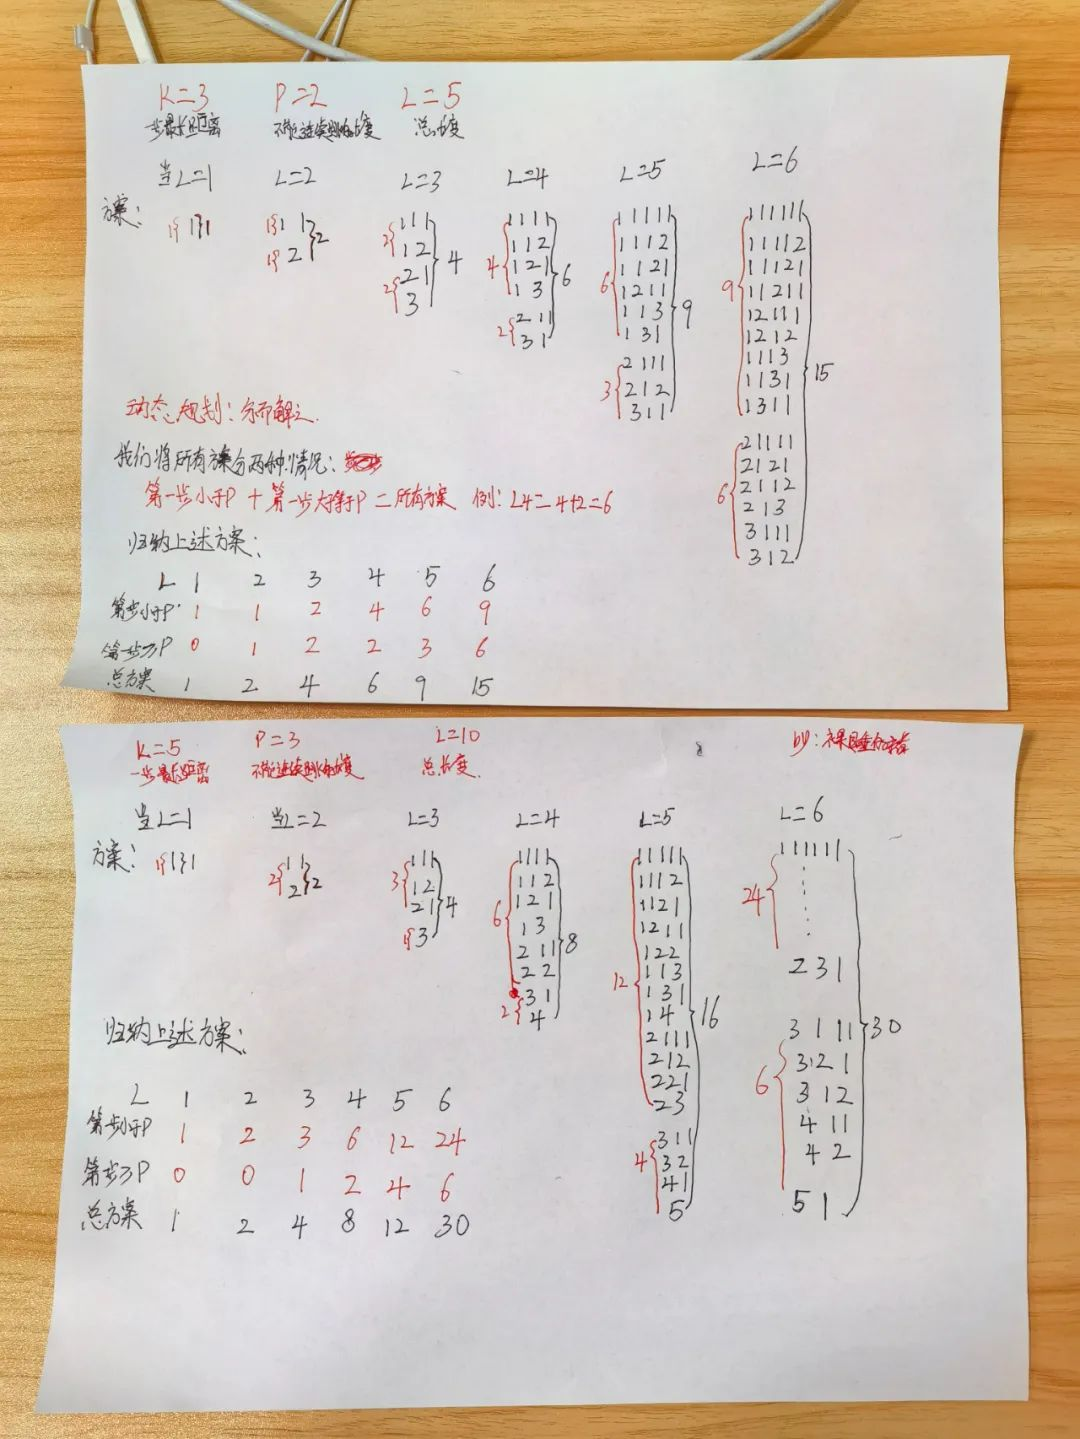 K=3 P=2 L=5
一步最长距离 不能连续跳的长度 总长度
当L=1 L=2 L=3 L=4 L=5 L=6
方案:
1{ 1}1
1{ 1 1 }2
1{ 2
2{ 111 }4
12
2{ 21
3
4{ 1111 }6
112
121
13
2{ 211
31
6{ 11111 }9
1112
1121
1211
113
131
3{ 2111
212
311
9{ 111111 }15
11112
11121
11211
12111
1212
1113
1131
1311
6{ 21111
2121
2112
213
3111
312
动态规划:分而解之.
我们将所有方案分两种情况:
第一步小于P + 第一步大于等于P = 所有方案 例: L4=4+2=6
归纳上述方案:
L 1 2 3 4 5 6
第一步小于P 1 1 2 4 6 9
第一步≥P 0 1 2 2 3 6
总方案 1 2 4 6 9 15
K=5 P=3 L=10
by:
一步最长距离 不能连续跳的长度 总长度.
当L=1 当L=2 L=3 L=4 L=5 L=6
方案:
1{ 1}1
2{ 11 }2
2
3{ 111 }4
12
21
1{ 3
6{ 1111 }8
112
121
13
211
22
2{ 31
4
12{ 11111 }16
1112
1121
1211
122
113
131
14
2111
212
221
23
4{ 311
32
41
5
24{ 111111 }30
231
3111
6{ 321
312
411
42
51
归纳上述方案:
L 1 2 3 4 5 6
第一步小于P 1 2 3 6 12 24
第一步≥P 0 0 1 2 4 6
总方案 1 2 4 8 12 30